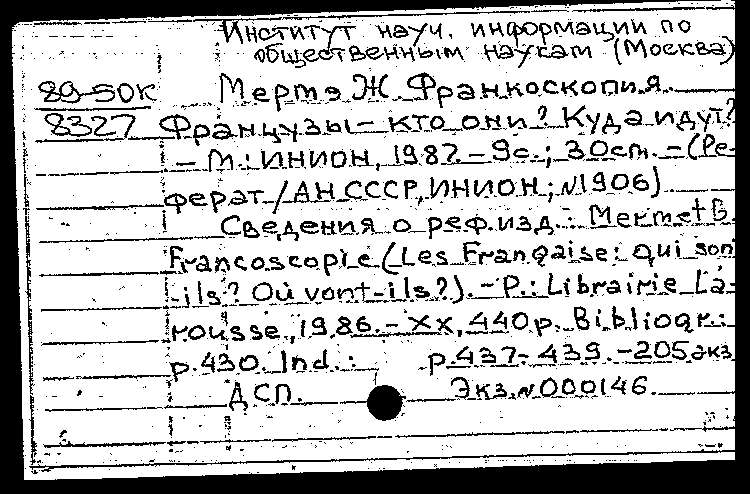 Институт науч. информации по
общественным наукам (Москва)
89-50К Мертэ Ж. Франкоскопия.
8327 Французы – кто они? Куда идут?
– М.: ИНИОН, 1987. – 9с.; 30см. – (Ре-
ферат / АН СССР, ИНИОН; №1906)
Сведения о реф. изд.: Mermet B.
Francoscopie (Les Française: qui son
-ils? Où vont-ils?). – P.: Librairie La-
rousse, 1986. – XX, 440p. Bibliogr.:
p.430. Ind.: p.437-439. – 205экз
ДСП. Экз. №000146.